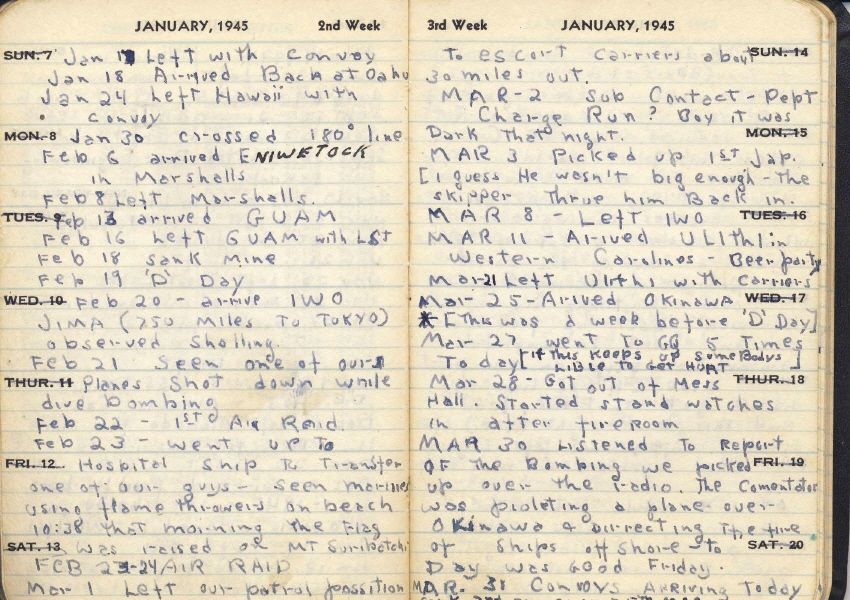 JANUARY, 1945 2nd Week
SUN. 7 Jan Left with Convoy
Jan 18 Arrived Back at Oahu
Jan 24 Left Hawaii with
Convoy
MON. 8 Jan 30 crossed 180° line
Feb 6 arrived ENIWETOCK
in Marshalls
Feb 8 Left Marshalls.
TUES. 9 Feb 13 arrived GUAM
Feb 16 Left GUAM with LST
Feb 18 sank mine
Feb 19 'D' Day
WED. 10 Feb 20 - arrive IWO
JIMA (750 Miles To TOKYO)
observed Shelling.
Feb 21 Seen one of ours
THUR. 11 Planes Shot down while
dive bombing
Feb 22 - 1st Air Raid.
Feb 23 - went up To
FRI. 12 Hospital Ship To Transfer
one of our guys - seen marines
using flame throwers on beach
10:38 that morning the Flag
SAT. 13 was raised on MT Suribatchi
FEB 23-24 AIR RAID
Mar 1 Left our patrol possition
3rd Week JANUARY, 1945
To escort Carriers about SUN. 14
30 miles out.
MAR-2 Sub Contact - Dept
Charge Run? Boy it was
Dark that night. MON. 15
MAR 3 Picked up 1st Jap.
[I guess He wasn't big enough - the
skipper thrue him Back in.
MAR 8 - Left IWO TUES. 16
MAR 11 - Arived ULIthI in
Western Carolines - Beer party
Mar-21 Left Ulithi with Carriers
Mar-25-Arived OKINAWA WED. 17
* [This was a week before 'D' Day]
Mar 27 went To GQ 5 Times
Today [if this keeps up somebodys
LIBLE To GET HURT]
Mar 28 - Got out of Mess THUR. 18
Hall. Started stand watches
in after fireroom
MAR 30 Listened To Report
OF The Bombing we picked FRI. 19
up over the radio. The Comentator
was pioleting a plane over
OKinawa & dirrecting The fire
of Ships off Shore - to SAT. 20
Day was Good Friday.
MAR. 31 Convoys ARRIVING Today